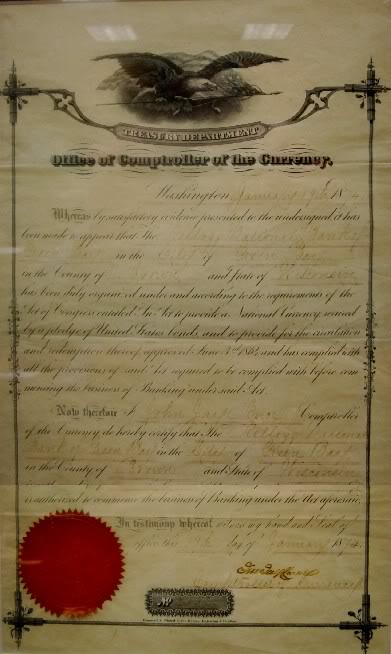 TREASURY DEPARTMENT
Office of Comptroller of the Currency.
Washington January 19th 1874
Whereas by satisfactory evidence presented to the undersigned, it has
been made to appear that The Kellogg National Bank of
Green Bay in the City of Green Bay
in the County of Brown and State of Wisconsin
has been duly organized under and according to the requirements of the
Act of Congress entitled "An Act to provide a National Currency, secured
by a pledge of United States bonds, and to provide for the circulation
and redemption thereof, approved June 3d 1864, and has complied with
all the provisions of said Act required to be complied with before com-
mencing the business of Banking under said Act.
Now therefore I John Jay Knox Comptroller
of the Currency do hereby certify that The Kellogg National
Bank of Green Bay in the City of Green Bay
in the County of Brown and State of Wisconsin
is authorized to commence the business of Banking under the Act aforesaid.
In testimony whereof witness my hand and Seal of
office this 19th day of January 1874.
Jno Jay Knox
Comptroller of the Currency
No